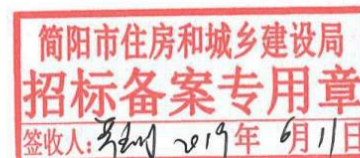 简阳市住房和城乡建设局
招标备案专用章
签收人: 2019年 6月11日